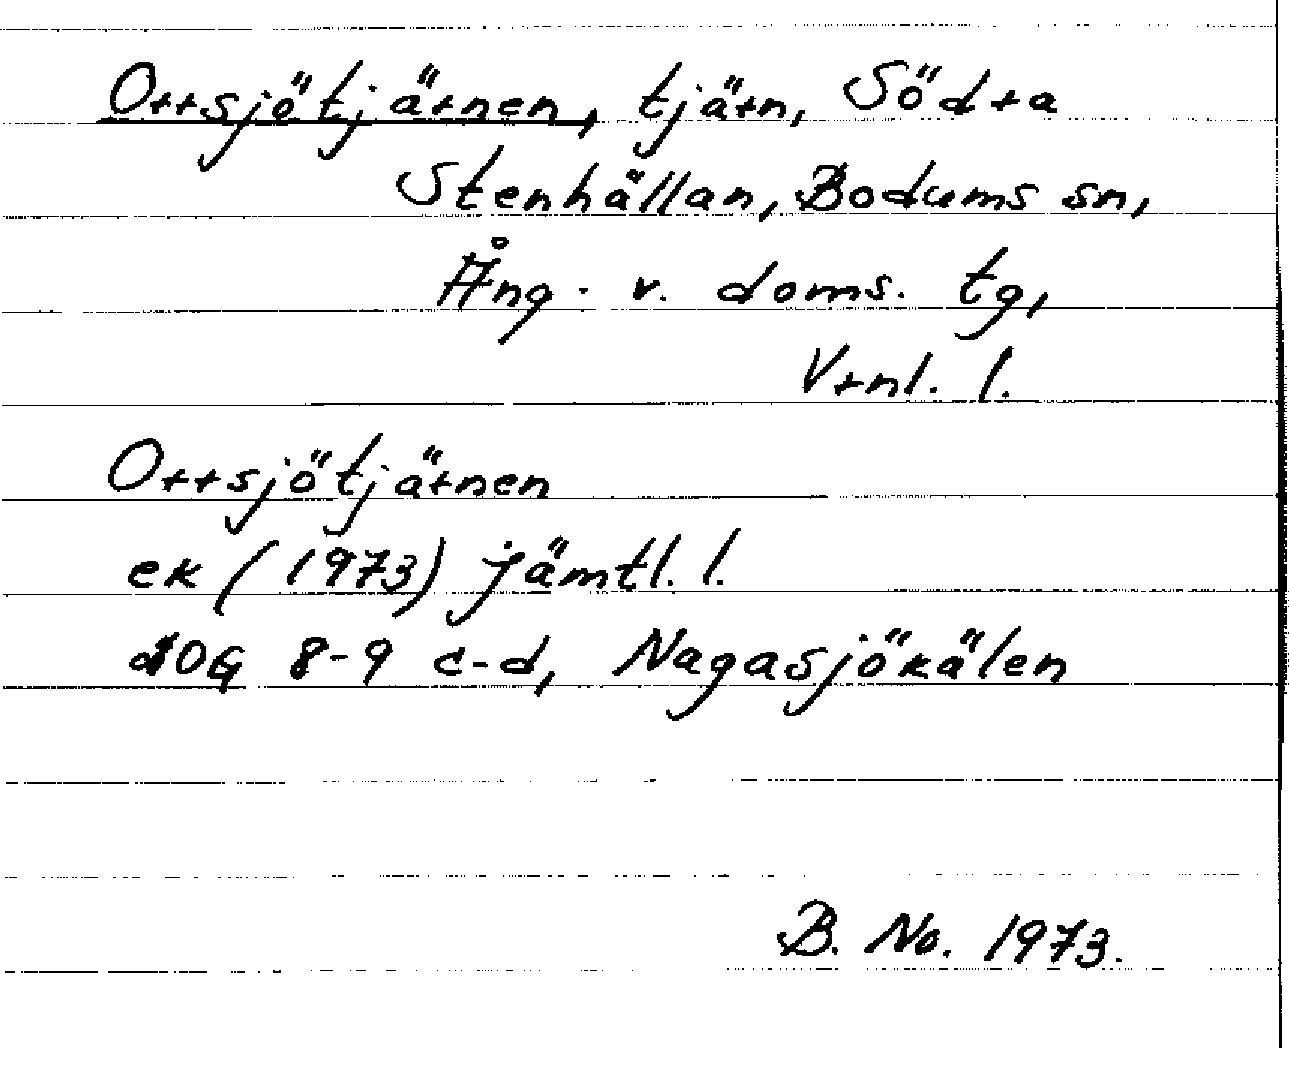 Orrsjötjärnen, tjärn, Södra
Stenhällan, Bodums sn,
Ång. v. doms. tg,
Vrnl. l.
Orrsjötjärnen
ek (1973) jämtl. l.
20G 8-9 c-d, Nagasjökälen
B. No. 1973.